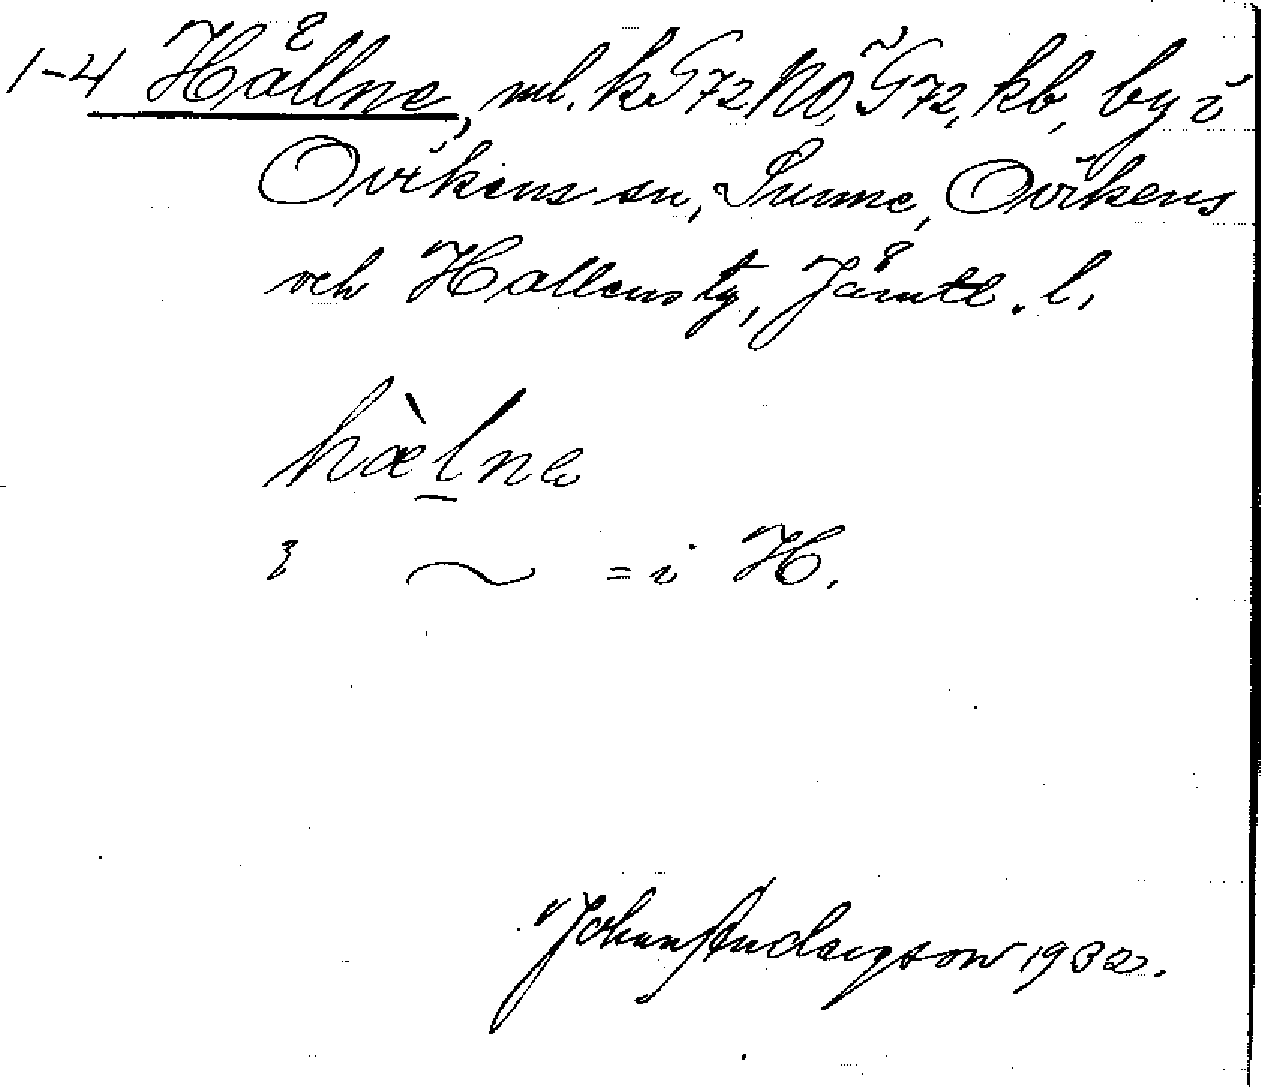 1-4 Hållne, ml. k G72 NO, G72, kb, by i
Ovikens sn, Sunne, Ovikens
och Hallens tg, Jämtl. l.
hæ̀l̠ne
i ~ = i H.
Johan Anderson 1932.